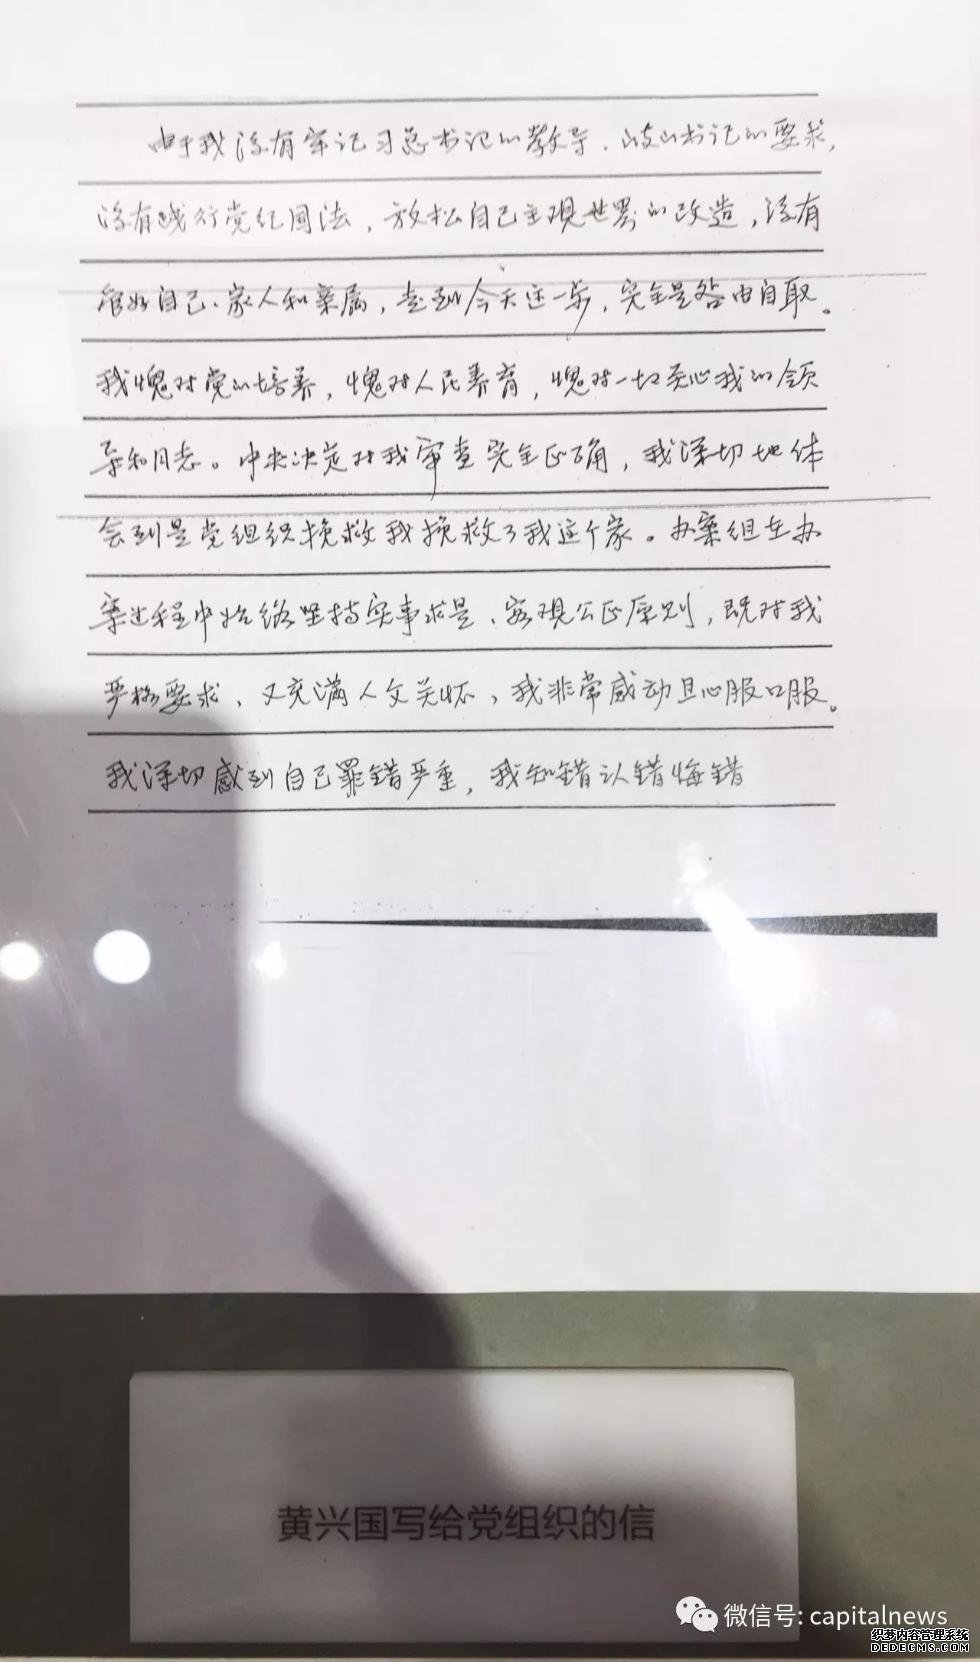 由于我没有牢记习总书记的教导、岐山书记的要求，
没有践行党纪国法，放松自己主观世界的改造，没有
管好自己、家人和亲属，走到今天这一步，完全是咎由自取。
我愧对党的培养，愧对人民养育，愧对一切关心我的领
导和同志。中央决定对我审查完全正确，我深切地体
会到是党组织挽救我挽救了我这个家。办案组在办
案过程中始终坚持实事求是、客观公正原则，既对我
严格要求，又充满人文关怀，我非常感动且心服口服。
我深切感到自己罪错严重，我知错认错悔错
黄兴国写给党组织的信
微信号: capitalnews
织梦内容管理系统
DEDECMS.COM